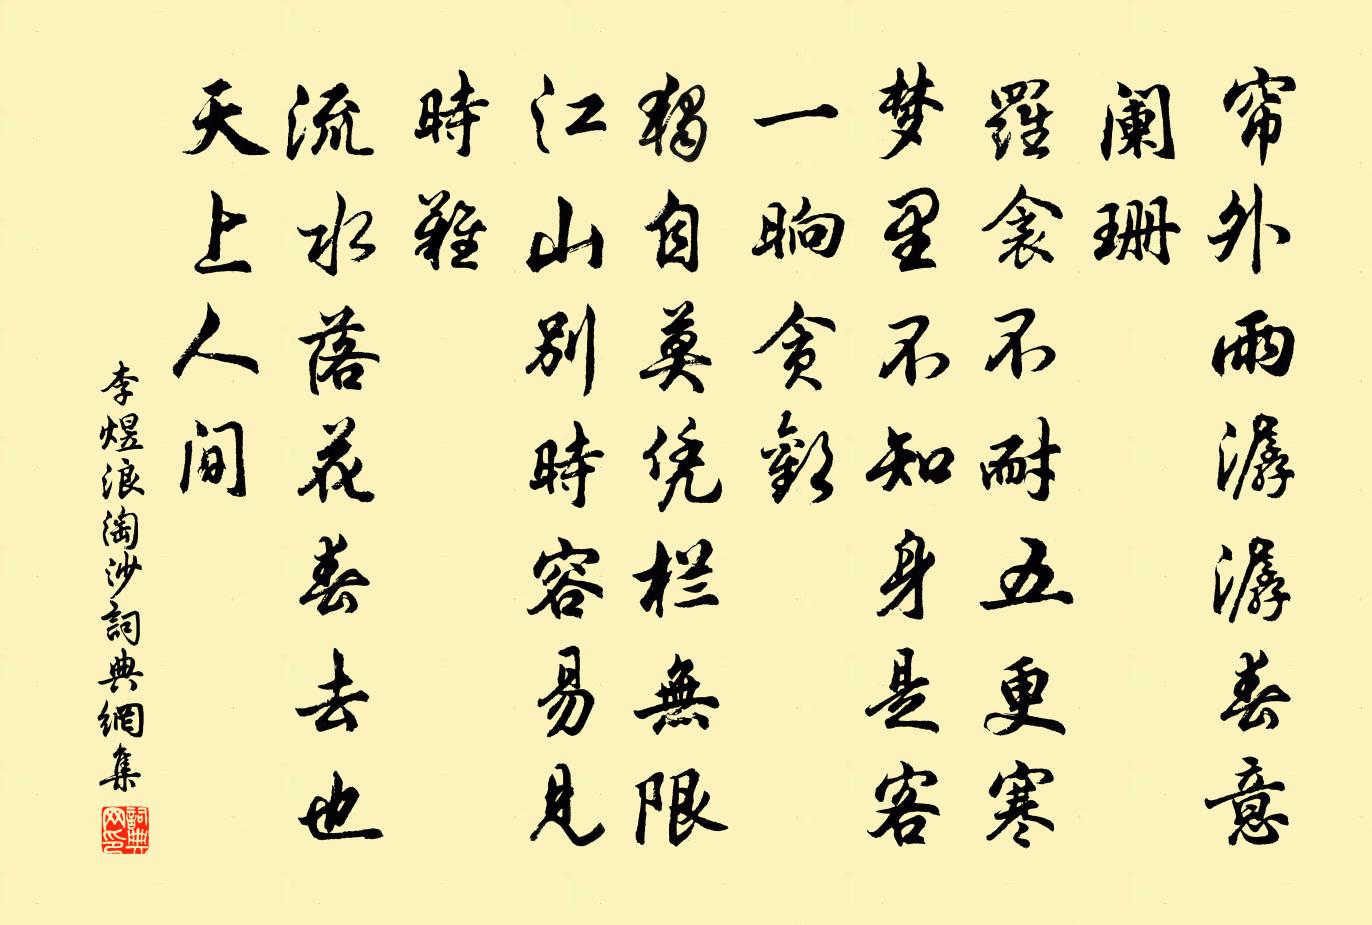 帘外雨潺潺春意
阑珊
羅衾不耐五更寒
梦里不知身是客
一晌贪歡
獨自莫凭栏無限
江山別時容易見
時難
流水落花春去也
天上人间
李煜浪淘沙詞典網集
詞典網印